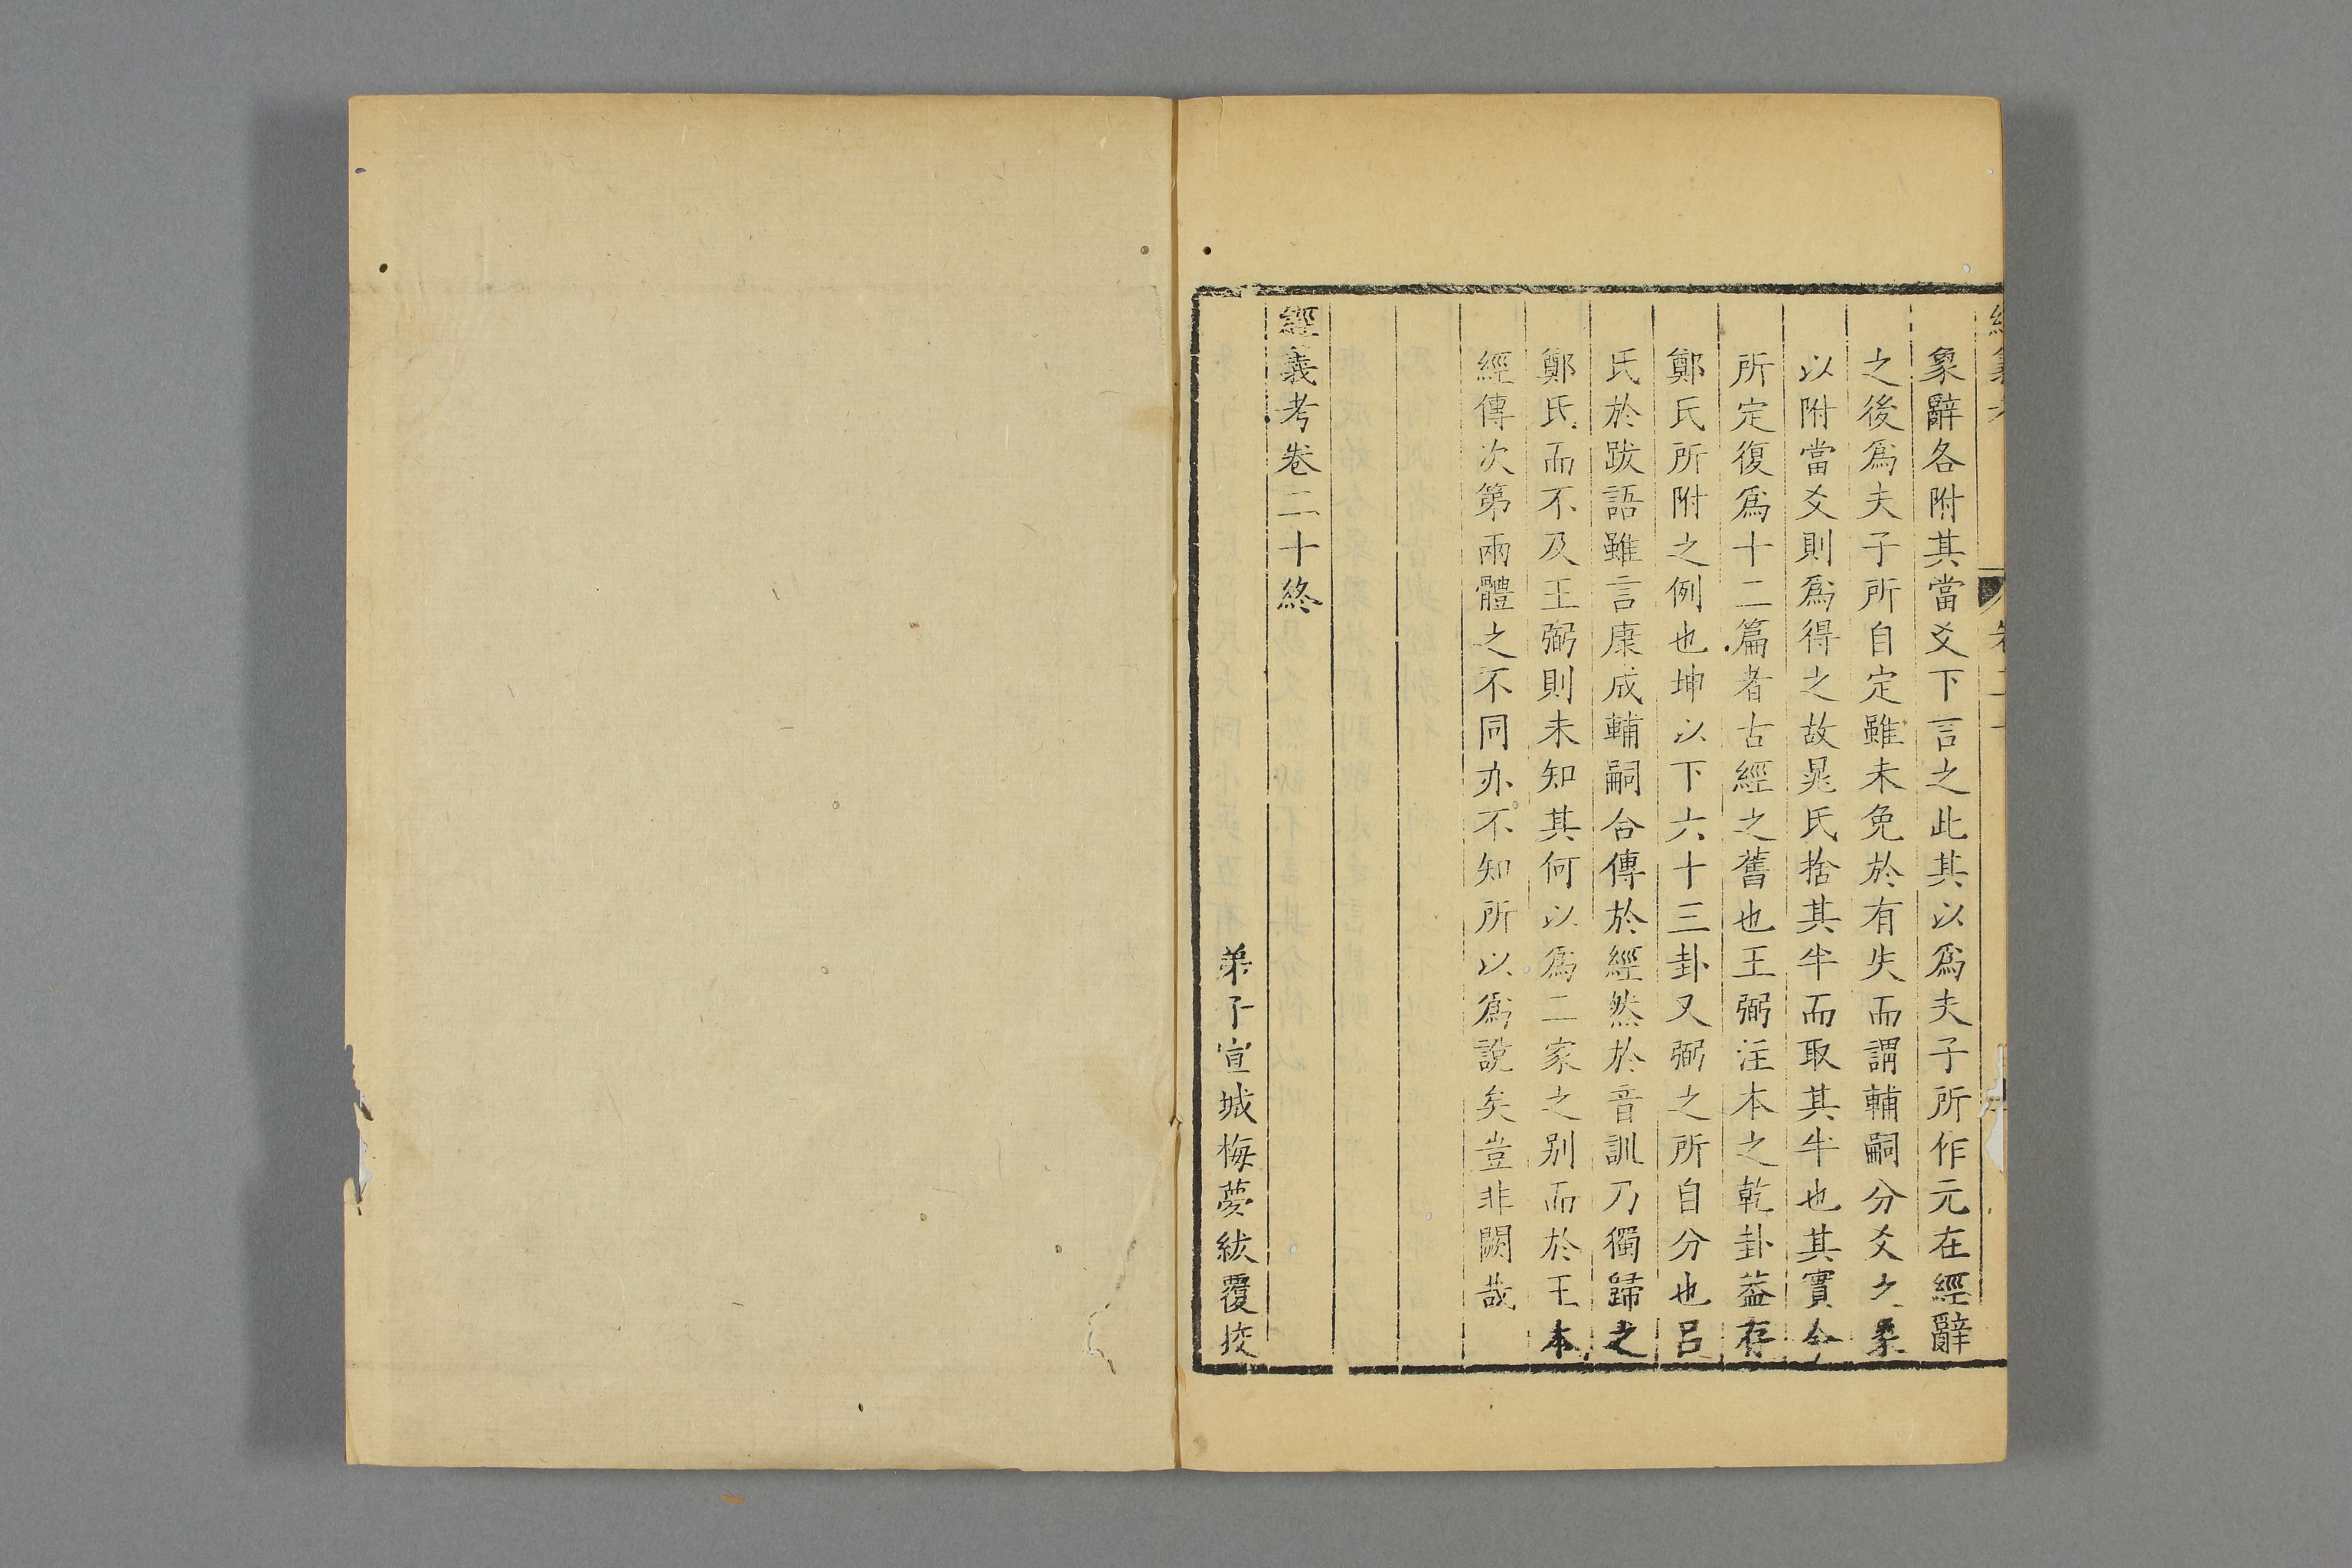 象辭各附其當爻下言之此其以爲夫子所作元在經辭
之後爲夫子所自定雖未免於有失而謂輔嗣分爻之象
以附當爻則爲得之故晁氏捨其半而取其半也其實今
所定復爲十二篇者古經之舊也王弼注本之乾卦葢存
鄭氏所附之例也坤以下六十三卦又弼之所自分也呂
氏於跋語雖言康成輔嗣合傳於經然於音訓乃獨歸之
鄭氏而不及王弼則未知其何以爲二家之别而於王本
經傳次第兩體之不同亦不知所以爲說矣豈非闕哉
經義考卷二十終
弟子宣城梅夢紱覆挍